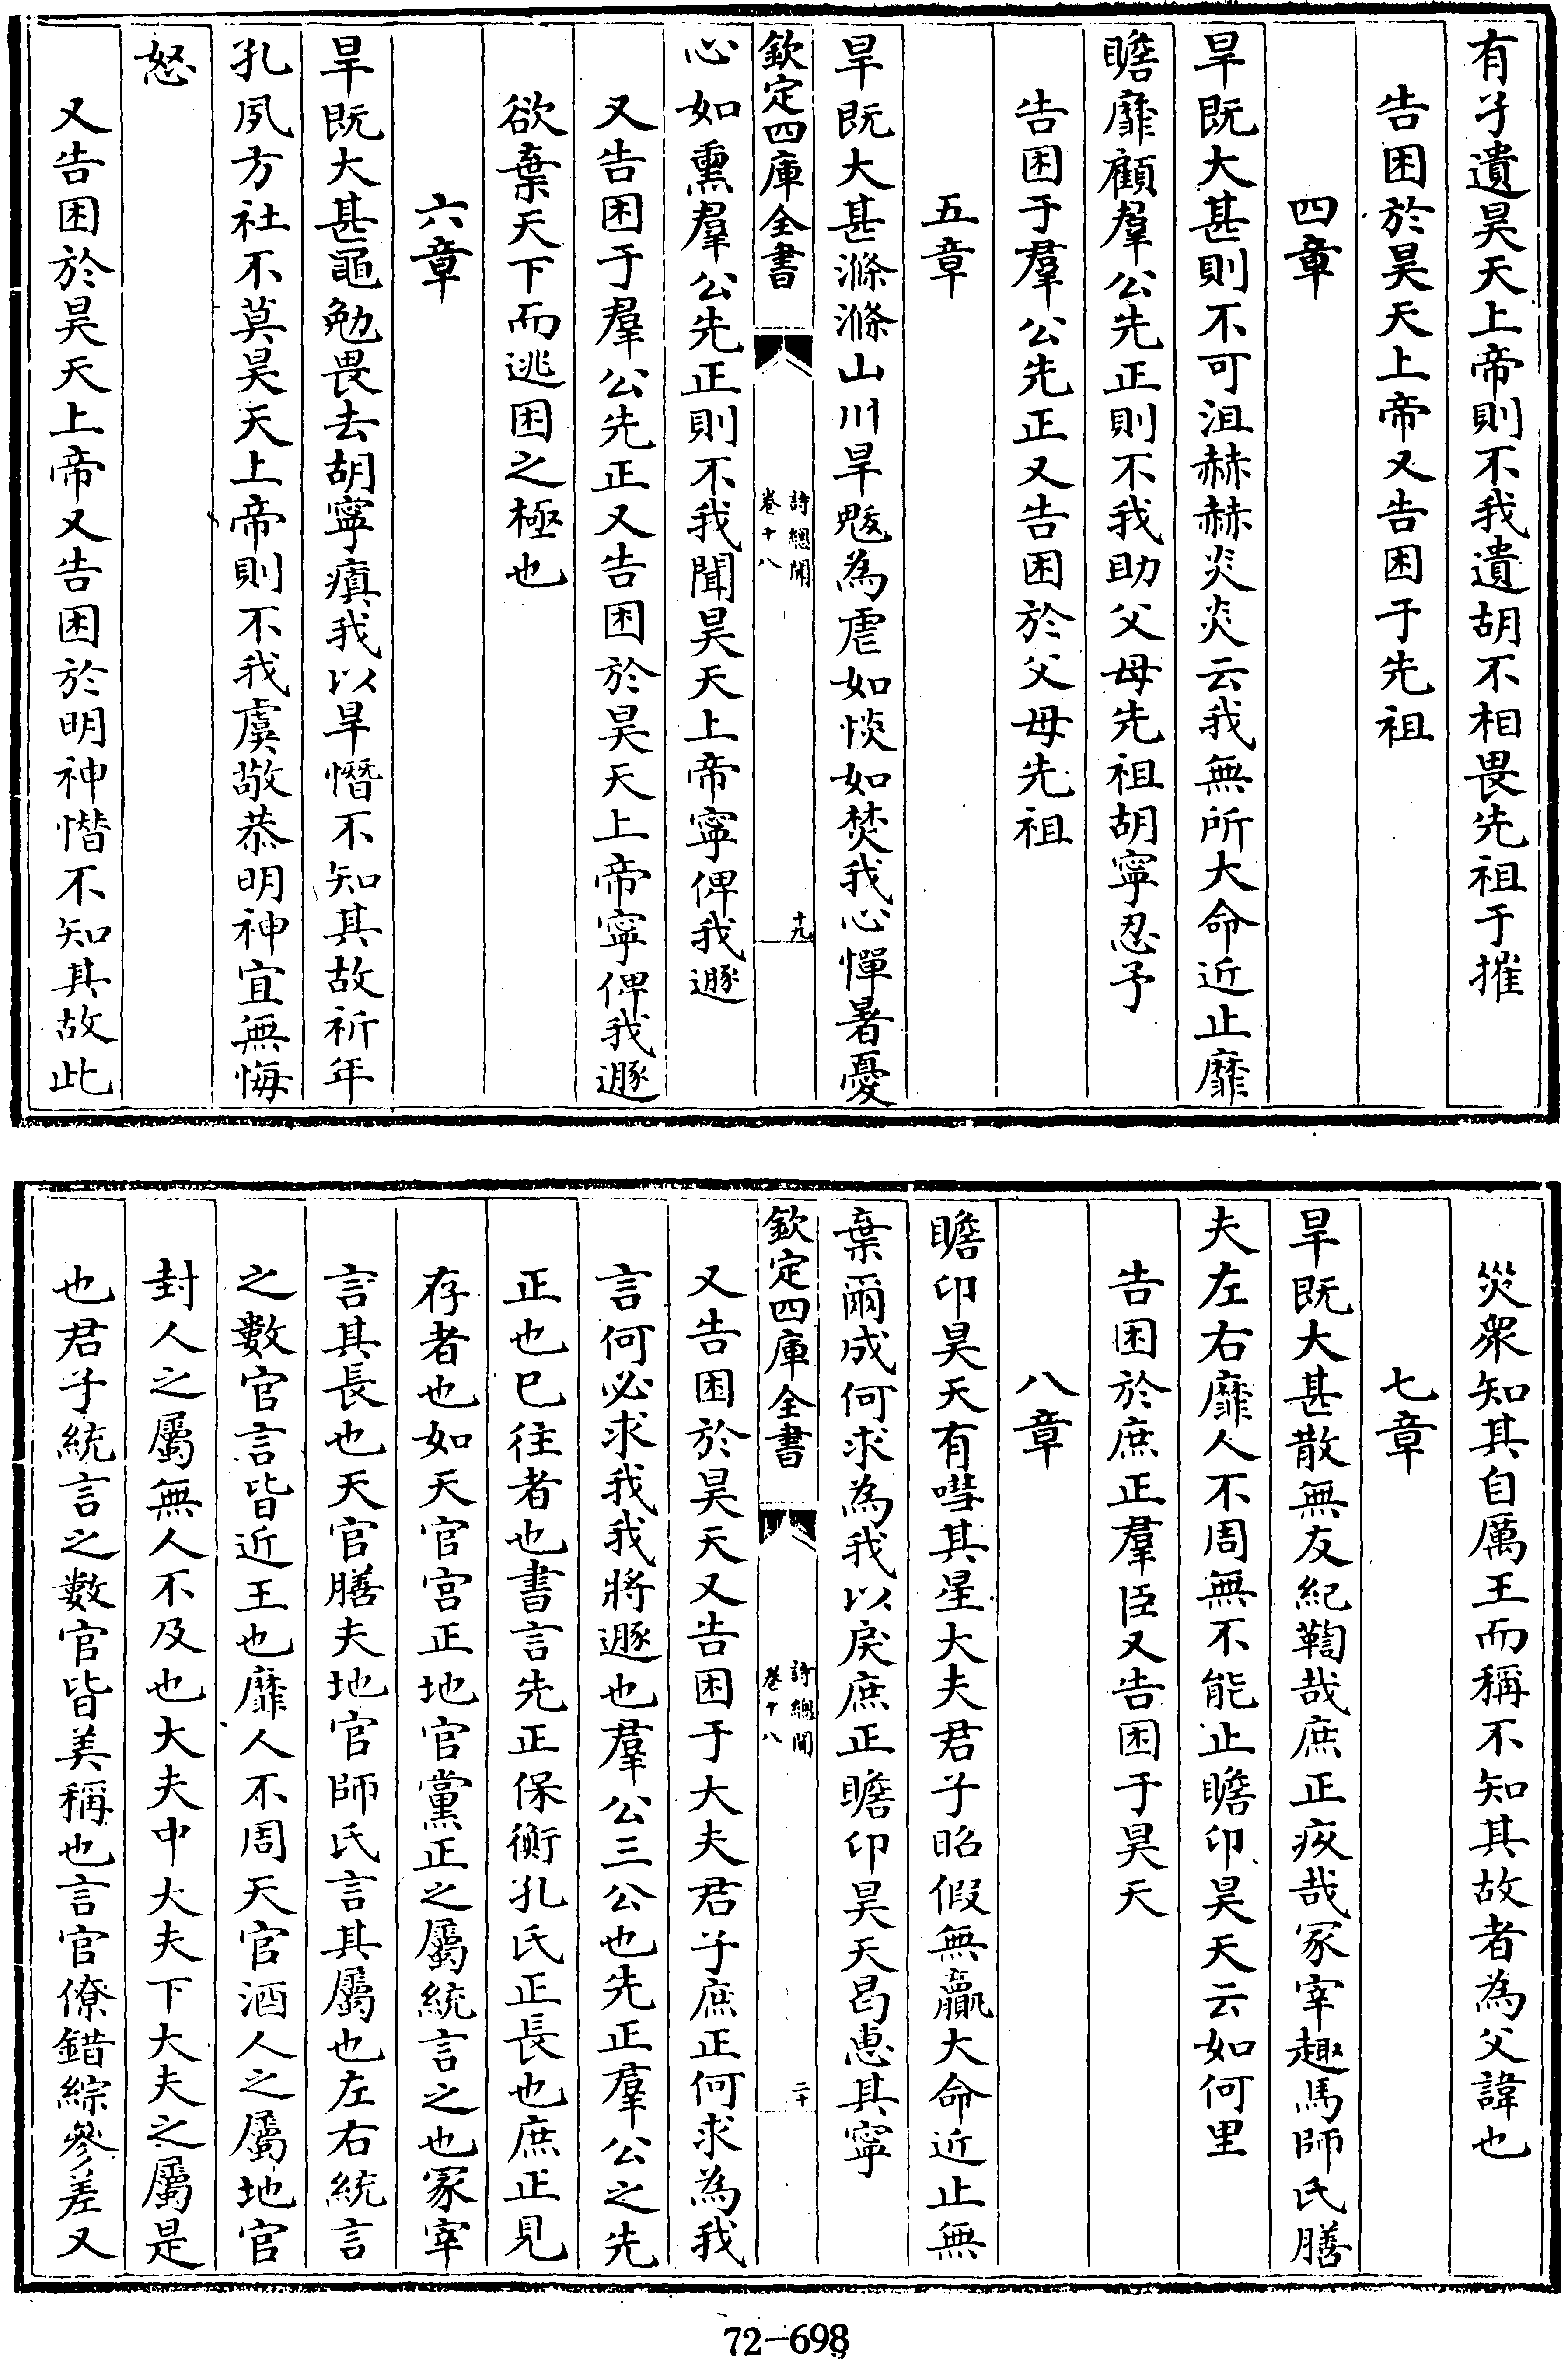 有孑遺昊天上帝則不我遺胡不相畏先祖于摧
告困於昊天上帝又告困于先祖
四章
旱既大甚則不可沮赫赫炎炎云我無所大命近止靡
瞻靡顧羣公先正則不我助父母先祖胡寧忍予
告困于羣公先正又告困於父母先祖
五章
旱既大甚滌滌山川旱魃為虐如惔如焚我心憚暑憂
欽定四庫全書
詩總聞
卷十八
十九
心如熏羣公先正則不我聞昊天上帝寧俾我遯
又告困于羣公先正又告困於昊天上帝寧俾我遯
欲棄天下而逃困之極也
六章
旱既大甚黽勉畏去胡寧瘨我以旱憯不知其故祈年
孔夙方社不莫昊天上帝則不我虞敬恭明神宜無悔
怒
又告困於昊天上帝又告困於明神憯不知其故此
災衆知其自厲王而稱不知其故者為父諱也
七章
旱既大甚散無友紀鞫哉庶正疚哉冢宰趣馬師氏膳
夫左右靡人不周無不能止瞻卬昊天云如何里
告困於庶正羣臣又告困于昊天
八章
瞻卬昊天有嘒其星大夫君子昭假無贏大命近止無
棄爾成何求為我以戾庶正瞻卬昊天曷惠其寧
欽定四庫全書
詩總聞
卷十八
二十
又告困於昊天又告困于大夫君子庶正何求為我
言何必求我我將遯也羣公三公也先正羣公之先
正也巳往者也書言先正保衡孔氏正長也庶正見
存者也如天官宮正地官黨正之屬統言之也冢宰
言其長也天官膳夫地官師氏言其屬也左右統言
之數官言皆近王也靡人不周天官酒人之屬地官
封人之屬無人不及也大夫中大夫下大夫之屬是
也君子統言之數官皆美稱也言官僚錯綜參差又
72-698